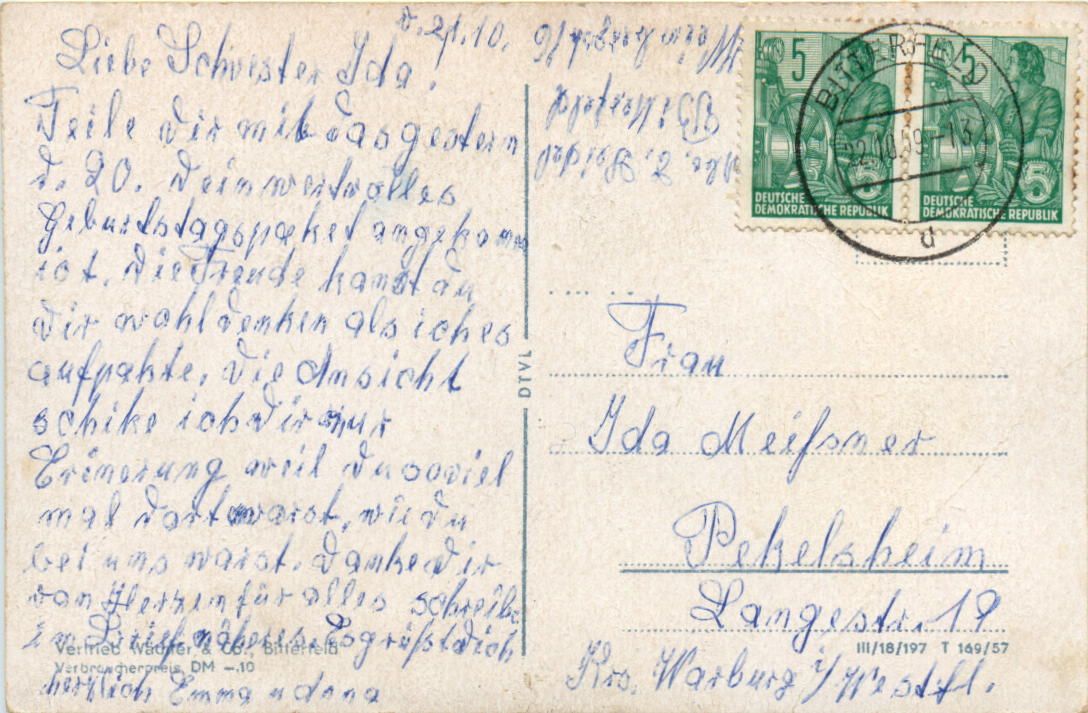 d. 21.10.
Liebe Schwester Ida.
Teile Dir mit das gestern
d. 20. Dein wertvolles
Geburtstagspaket angekomm
ist. Die Freude kanst du
Dir wohl denken als iches
aufpakte. Die Ansicht
schike ich Dir zur
Erinerung weil Du soviel
mal dort warst, wie du
bei uns warst. Danke Dir
von Herzen für alles schreibe
im Brief näheres. Es grüßt dich
herzlich Emma u Anna
Vertrieb Wagner & Co., Bitterfeld
Verbraucherpreis DM –.10
DTVL
Bitterfeld
5
5
BITTERFELD
22.10.59.-13
d
5
5
DEUTSCHE
DEMOKRATISCHE REPUBLIK
DEUTSCHE
DEMOKRATISCHE REPUBLIK
Frau
Ida Meißner
Pekelsheim
Langestr. 19
III/18/197 T 169/57
Krs. Warburg i/Westfl.